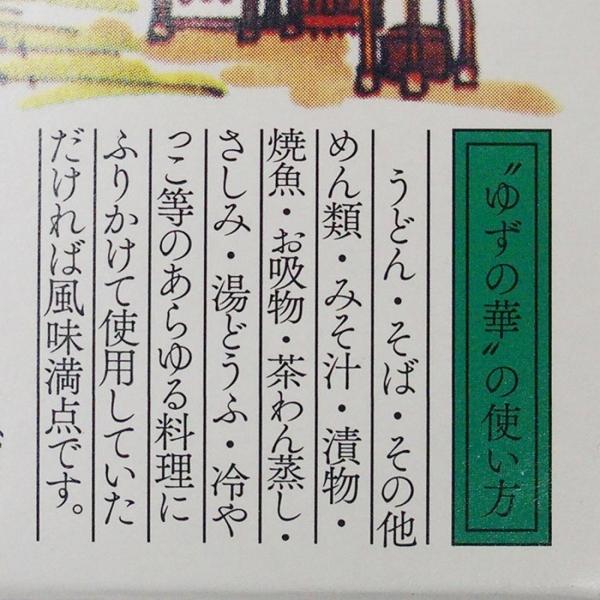 〝ゆずの華〟の使い方
うどん・そば・その他
めん類・みそ汁・漬物・
焼魚・お吸物・茶わん蒸し・
さしみ・湯どうふ・冷や
っこ等のあらゆる料理に
ふりかけて使用していた
だければ風味満点です。